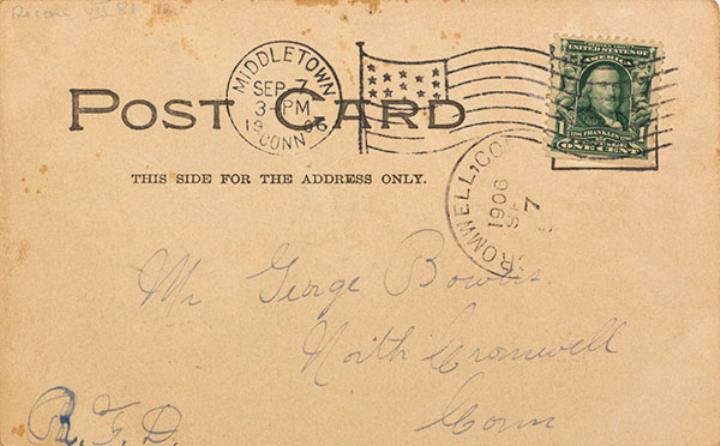 VII 81
MIDDLETOWN
SEP 7
3-PM
1906
CONN.
POST CARD
UNITED STATES OF
AMERICA
FRANKLIN
1 ONE CENT 1
THIS SIDE FOR THE ADDRESS ONLY.
CROMWELL, CO
1906
SE
7
Mr George
North Cromwell
Conn
R. F. D.